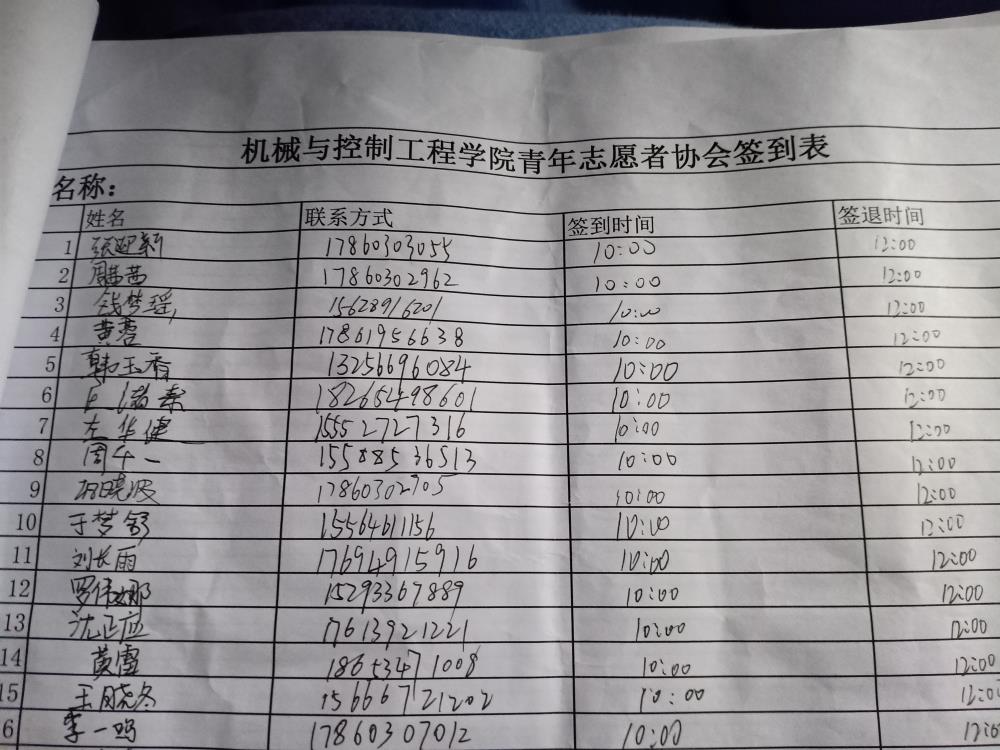 机械与控制工程学院青年志愿者协会签到表
名称：
姓名 联系方式 签到时间 签退时间
1 张迎新 17860303055 10:00 12:00
2 周茜茜 17860302962 10:00 12:00
3 钱梦瑶 15628916201 10:00 12:00
4 黄蓉 17861956638 10:00 12:00
5 韩玉香 13256696084 10:00 12:00
6 18265498601 10:00 12:00
7 左华健 15552727316 10:00 12:00
8 周午一 15588536513 10:00 12:00
9 胡晓波 17860302705 10:00 12:00
10 于梦舒 1556461156 10:00 12:00
11 刘长雨 17694915916 10:00 12:00
12 罗伟娜 15293367889 10:00 12:00
13 沈正应 17613921221 10:00 12:00
14 黄雪 18653471008 10:00 12:00
15 王晓冬 15666721202 10:00 12:00
6 李一鸣 17860307012 10:00 12:00